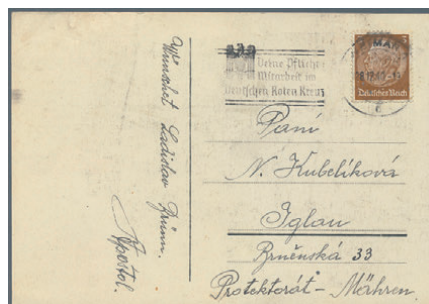 Deine Pflicht
Mitarbeit im
Deutschen Roten Kreuz
Deutsches Reich
Paní
N. Kubelíková
Iglau
Brněnská 33
Protektorát – Mähren
Ladislav Brünn.
Apoštol